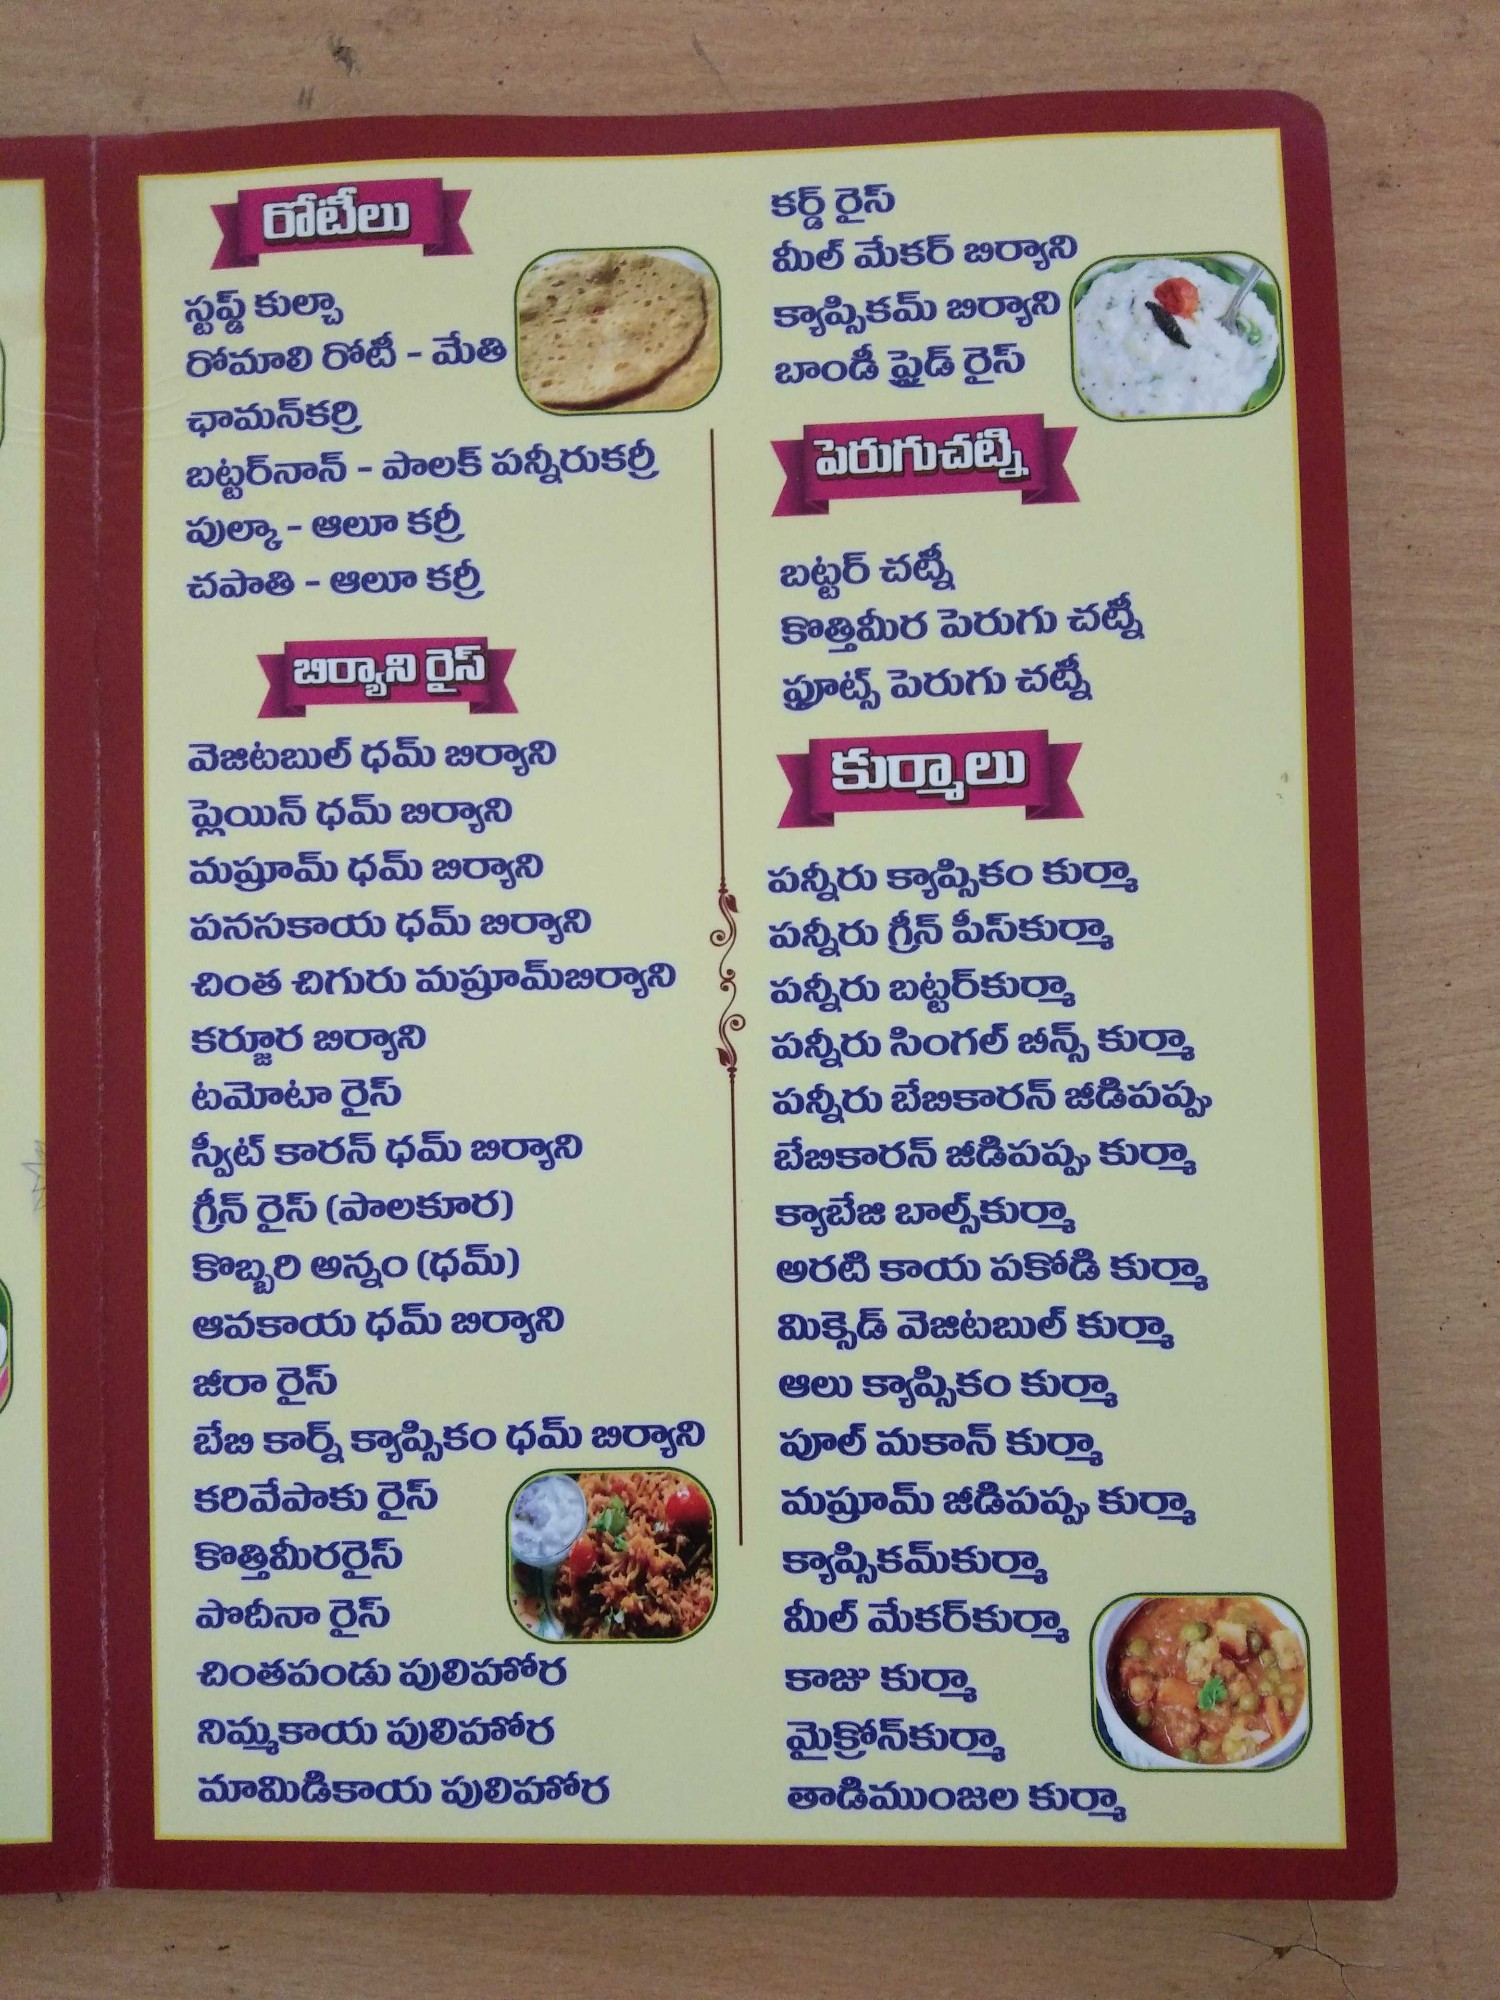 రోటీలు
స్టఫ్డ్ కుల్చా
రోమాలి రోటీ - మేతి
ఛామన్‌కర్రి
బట్టర్‌నాన్ - పాలక్ పన్నీరుకర్రీ
పుల్కా - ఆలూ కర్రీ
చపాతి - ఆలూ కర్రీ
బిర్యాని రైస్
వెజిటబుల్ ధమ్ బిర్యాని
ప్లెయిన్ ధమ్ బిర్యాని
మష్రూమ్ ధమ్ బిర్యాని
పనసకాయ ధమ్ బిర్యాని
చింత చిగురు మష్రూమ్‌బిర్యాని
కర్జూర బిర్యాని
టమోటా రైస్
స్వీట్ కారన్ ధమ్ బిర్యాని
గ్రీన్ రైస్ (పాలకూర)
కొబ్బరి అన్నం (ధమ్)
ఆవకాయ ధమ్ బిర్యాని
జీరా రైస్
బేబి కార్న్ క్యాప్సికం ధమ్ బిర్యాని
కరివేపాకు రైస్
కొత్తిమీరరైస్
పొదీనా రైస్
చింతపండు పులిహోర
నిమ్మకాయ పులిహోర
మామిడికాయ పులిహోర
కర్డ్ రైస్
మీల్ మేకర్ బిర్యాని
క్యాప్సికమ్ బిర్యాని
బాండీ ఫ్రైడ్ రైస్
పెరుగుచట్ని
బట్టర్ చట్నీ
కొత్తిమీర పెరుగు చట్నీ
ఫ్రూట్స్ పెరుగు చట్నీ
కుర్మాలు
పన్నీరు క్యాప్సికం కుర్మా
పన్నీరు గ్రీన్ పీస్‌కుర్మా
పన్నీరు బట్టర్‌కుర్మా
పన్నీరు సింగల్ బీన్స్ కుర్మా
పన్నీరు బేబికారన్ జీడిపప్పు
బేబికారన్ జీడిపప్పు కుర్మా
క్యాబేజి బాల్స్‌కుర్మా
అరటి కాయ పకోడి కుర్మా
మిక్సెడ్ వెజిటబుల్ కుర్మా
ఆలు క్యాప్సికం కుర్మా
పూల్ మకాన్ కుర్మా
మష్రూమ్ జీడిపప్పు కుర్మా
క్యాప్సికమ్‌కుర్మా
మీల్ మేకర్‌కుర్మా
కాజు కుర్మా
మైక్రోన్‌కుర్మా
తాడిముంజల కుర్మా